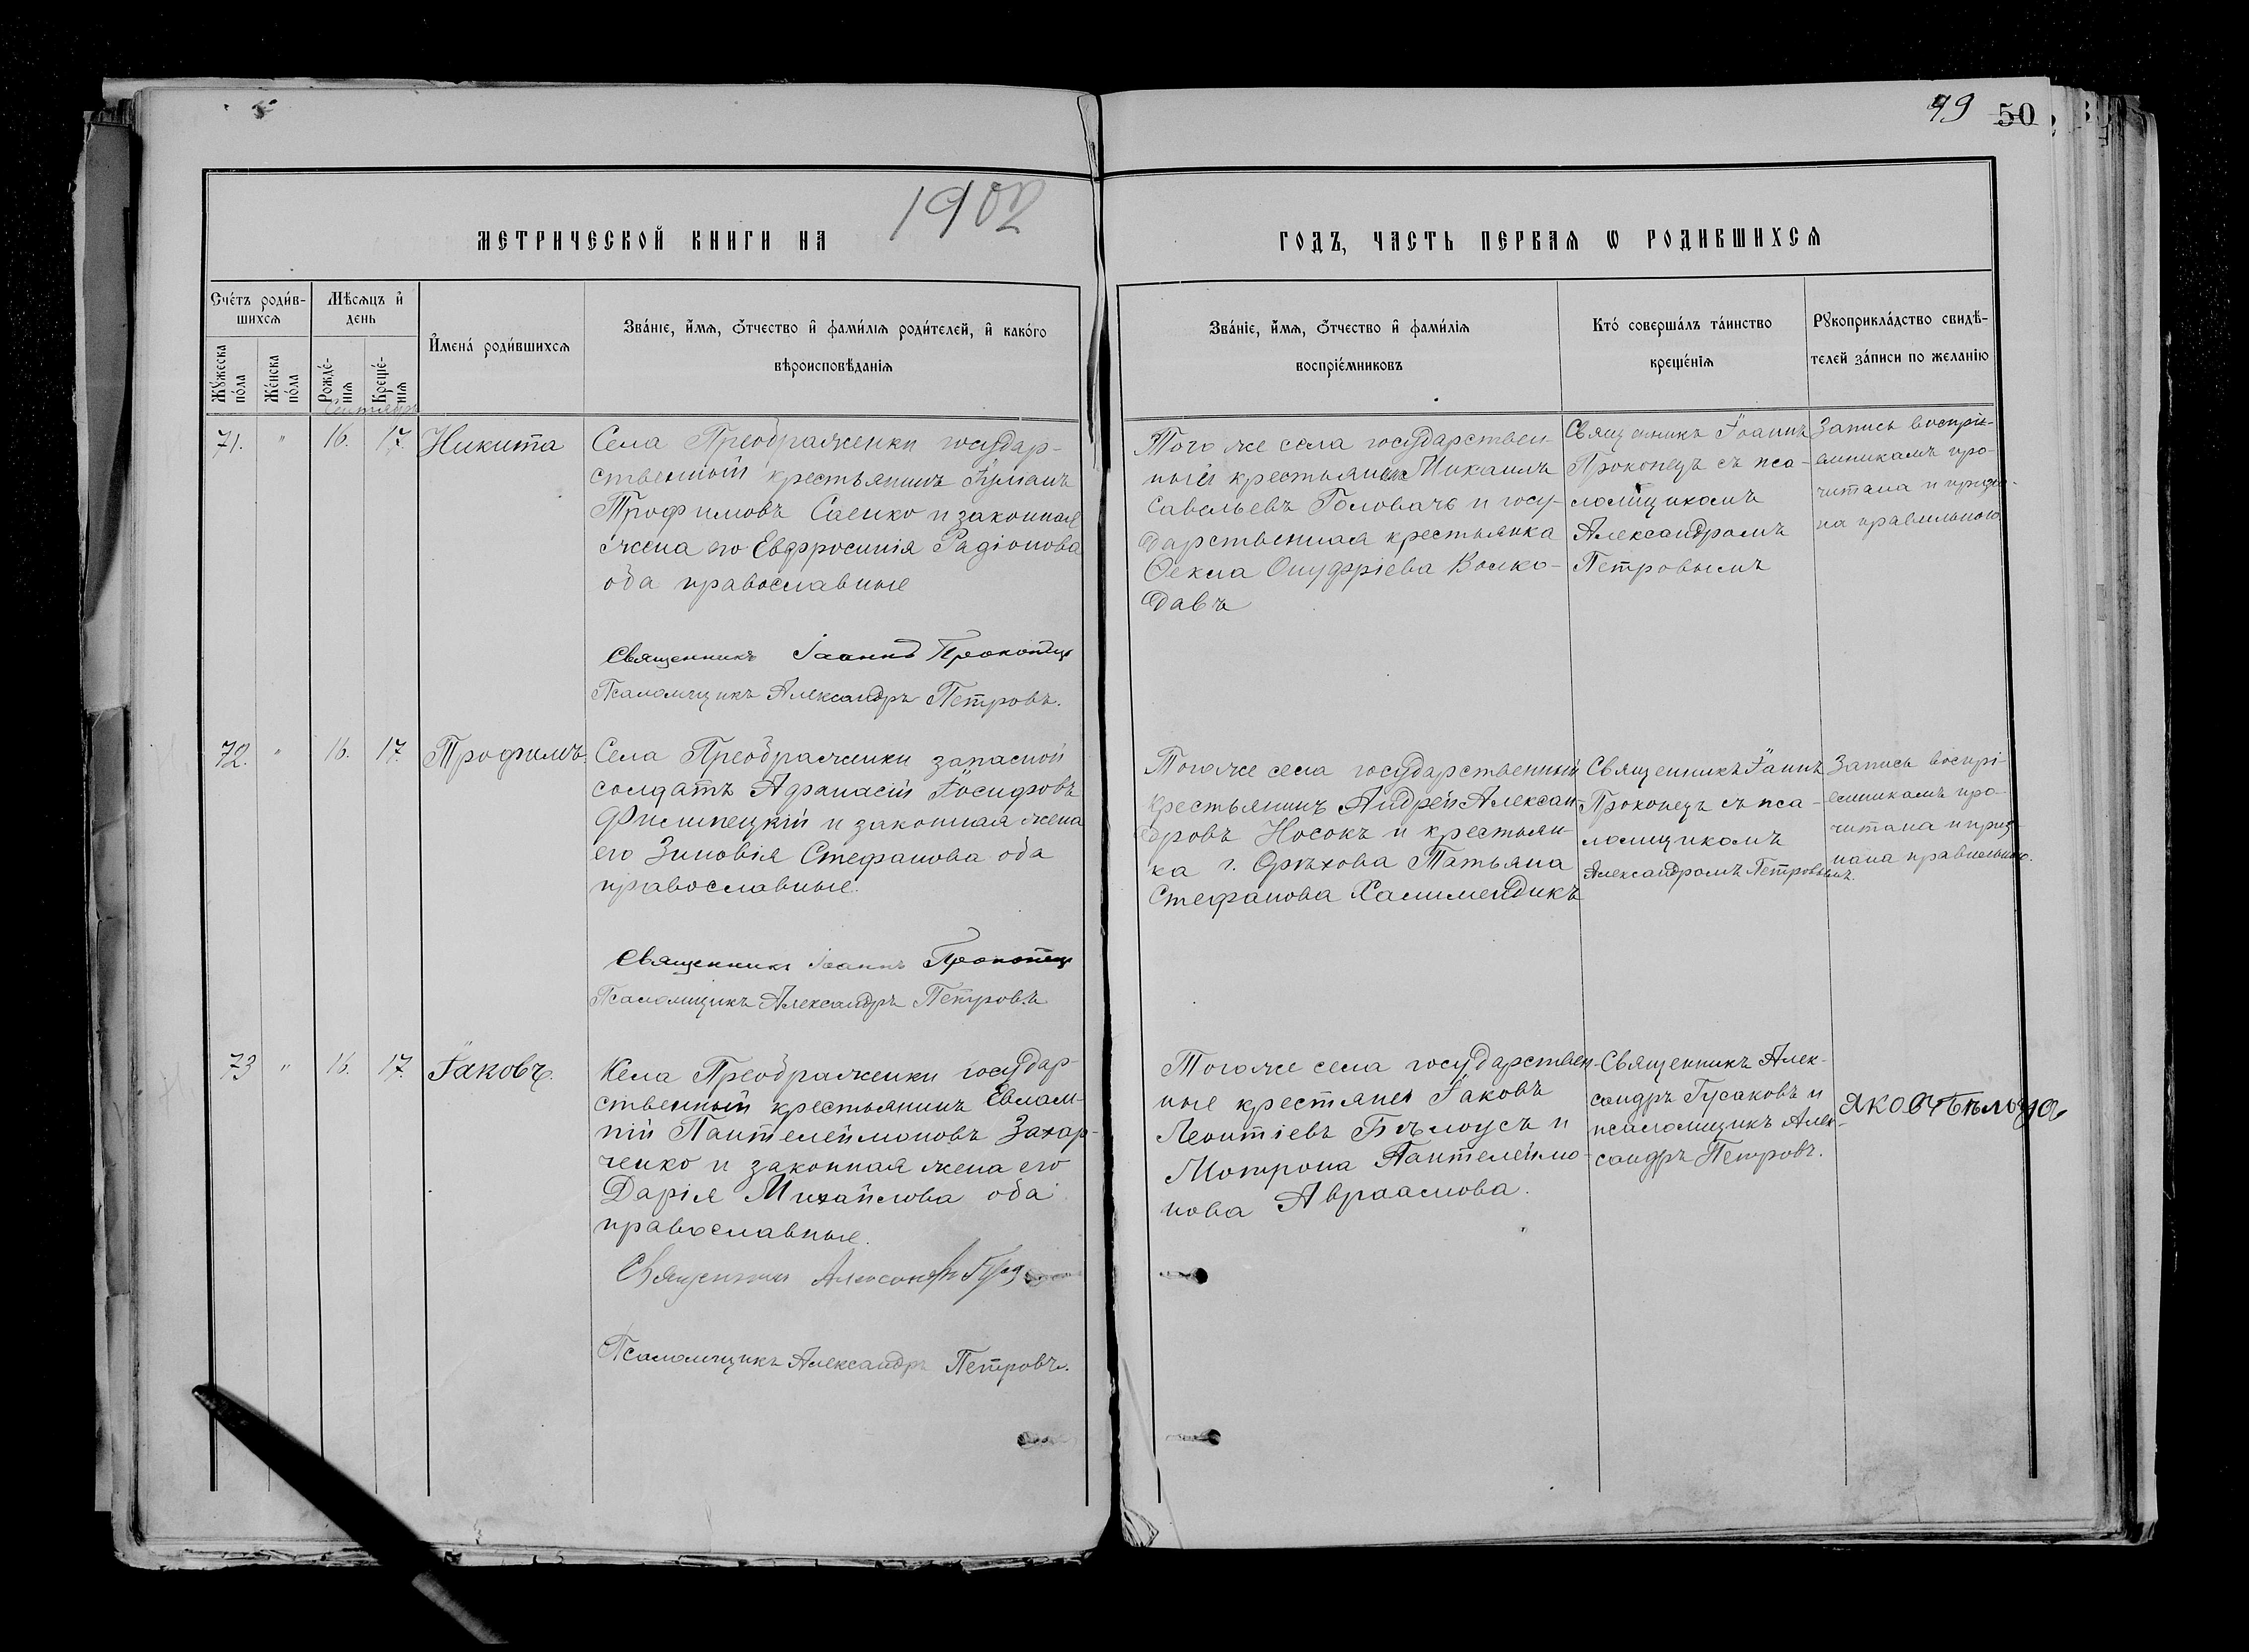 49 50
1902
МЕТРИЧЕСКОЙ КНИГИ НА
ГОДЪ, ЧАСТЬ ПЕРВАЯ Ѡ РОДИВШИХСЯ
Счётъ роди́в-
шихсѧ
Мѣсѧцъ и҆
день
И҆мена́ роди́вшихсѧ
Зва́нїе, и҆́мѧ, ѻ҆́тчество и҆ фами́лїѧ роди́телей, и҆ како́гѡ
вѣроисповѣ́данїѧ
Му́жеска
по́ла
Же́нска
по́ла
Рожде́-
нїѧ
Креще́-
нїѧ
Зва́нїе, и҆́мѧ, ѻ҆́тчество и҆ фами́лїѧ
воспрїе́мниковъ
Кто́ соверша́лъ та́инство
креще́нїѧ
Рꙋкоприкла́дство свидѣ́-
телей за́писи по жела́нїю
Сентябрь
71. " 16. 17. Никита
Села Преображенки государ-
ственный крестьянинъ Іуліанъ
Трофимовъ Саенко и законная
жена его Евфросинія Радіонова
оба православные
Священникъ Іоаннъ Прокопецъ
Псаломщикъ Александръ Петровъ.
Того же села государствен-
ный крестьянинъ Михаилъ
Савельевъ Головачъ и госу-
дарственная крестьянка
Ѳекла Онуфріева Волко-
давъ
Священникъ Іоаннъ
Прокопецъ съ пса-
ломщикомъ
Александромъ
Петровымъ
Запись воспрі-
емникамъ про-
читана и призна-
на правильною
72. " 16. 17. Трофимъ.
Села Преображенки запасной
солдатъ Афанасій Іосифовъ
Филипецкій и законная жена
его Зиновія Стефанова оба
православные.
Священникъ Іоаннъ Прокопецъ
Псаломщикъ Александръ Петровъ
Тогоже села государственный
крестьянинъ Андрей Алексан-
дровъ Носокъ и крестьян-
ка г. Орѣхова Татьяна
Стефанова Халимендикъ
Священникъ Іаннъ
Прокопецъ съ пса-
ломщикомъ
Александромъ Петровымъ.
Запись воспрі-
емникамъ про-
читана и приз-
нана правильною.
73 " 16. 17. Іаковъ.
Села Преображенки государ-
ственный крестьянинъ Евлам-
пій Пантелеймоновъ Захар-
ченко и законная жена его
Дарія Михайлова оба
православные.
Священникъ Александръ
Псаломщикъ Александръ Петровъ.
Тогоже села государствен-
ные крестяне Іаковъ
Леонтіевъ Бѣлоусъ и
Мотрона Пантелеймо-
нова Авраамова.
Священникъ Алек-
сандръ Гусаковъ и
псаломщикъ Алек-
сандръ Петровъ.
Яковъ Бѣлоус